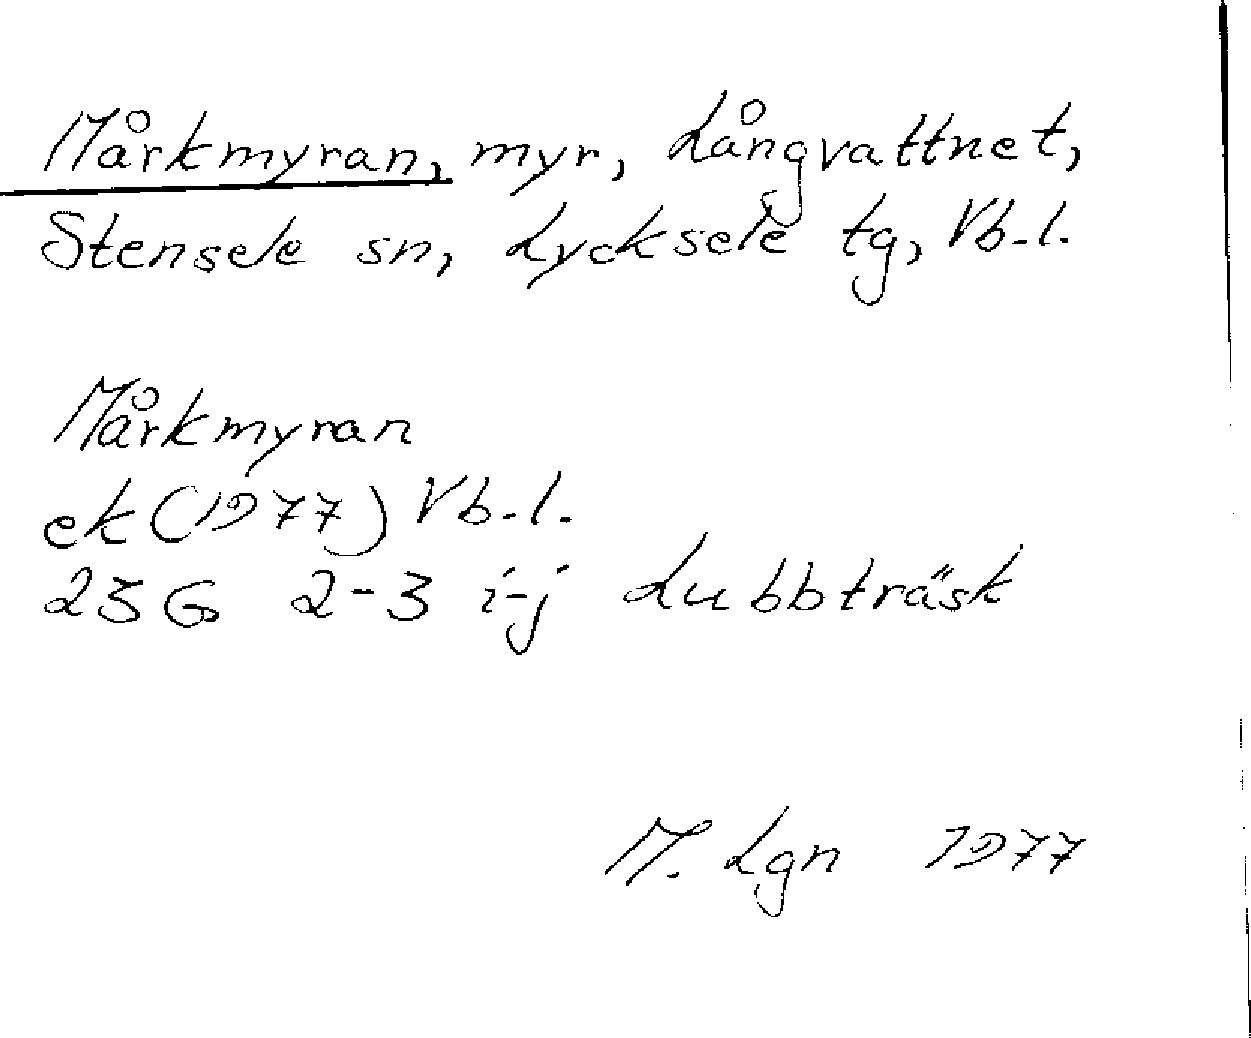 Mårkmyran, myr, Långvattnet,
Stensele sn, Lycksele tg, Vb.l.
Mårkmyran
ek (1977) Vb.l.
23G 2-3 i-j Lubbträsk
M. Lgn 1977